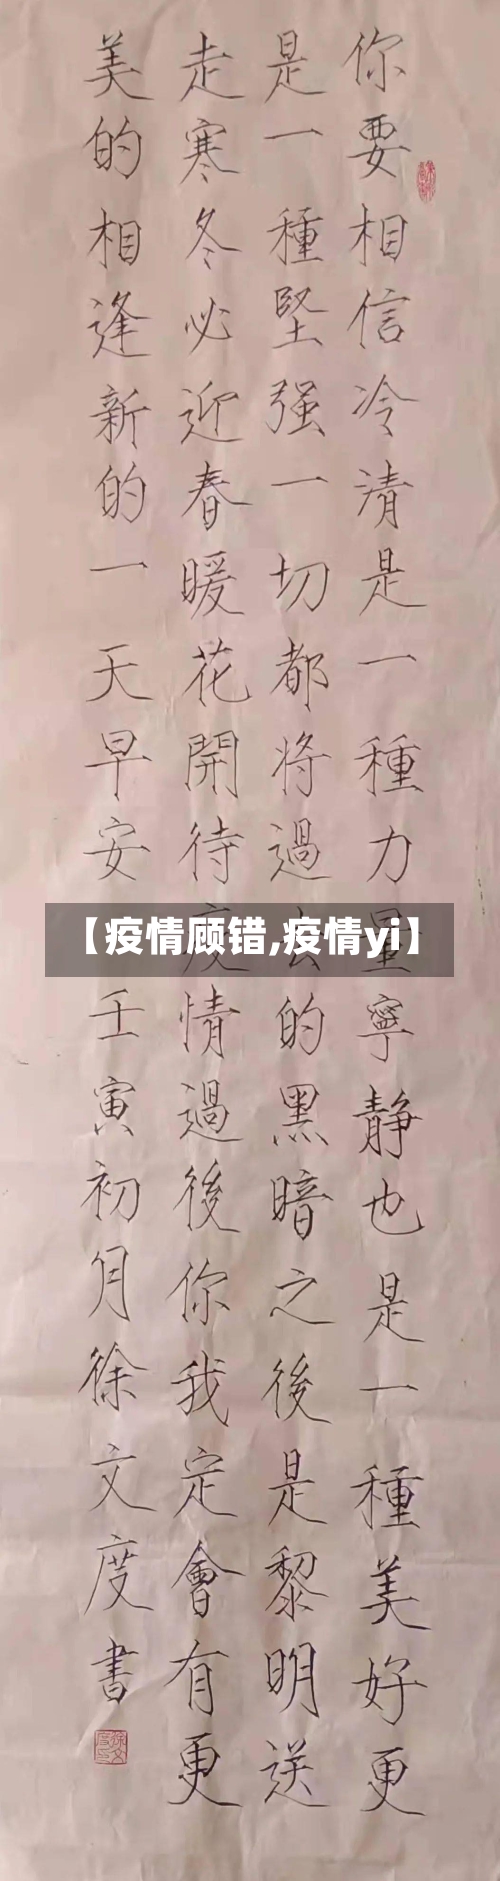 你要相信冷清是一種力量寧靜也是一種美好更
是一種堅强一切都将過去的黑暗之後是黎明送
走寒冬必迎春暖花開待疫情過後你我定會有更
美的相逢新的一天早安 壬寅初月徐文度書
【疫情顾错,疫情yi】